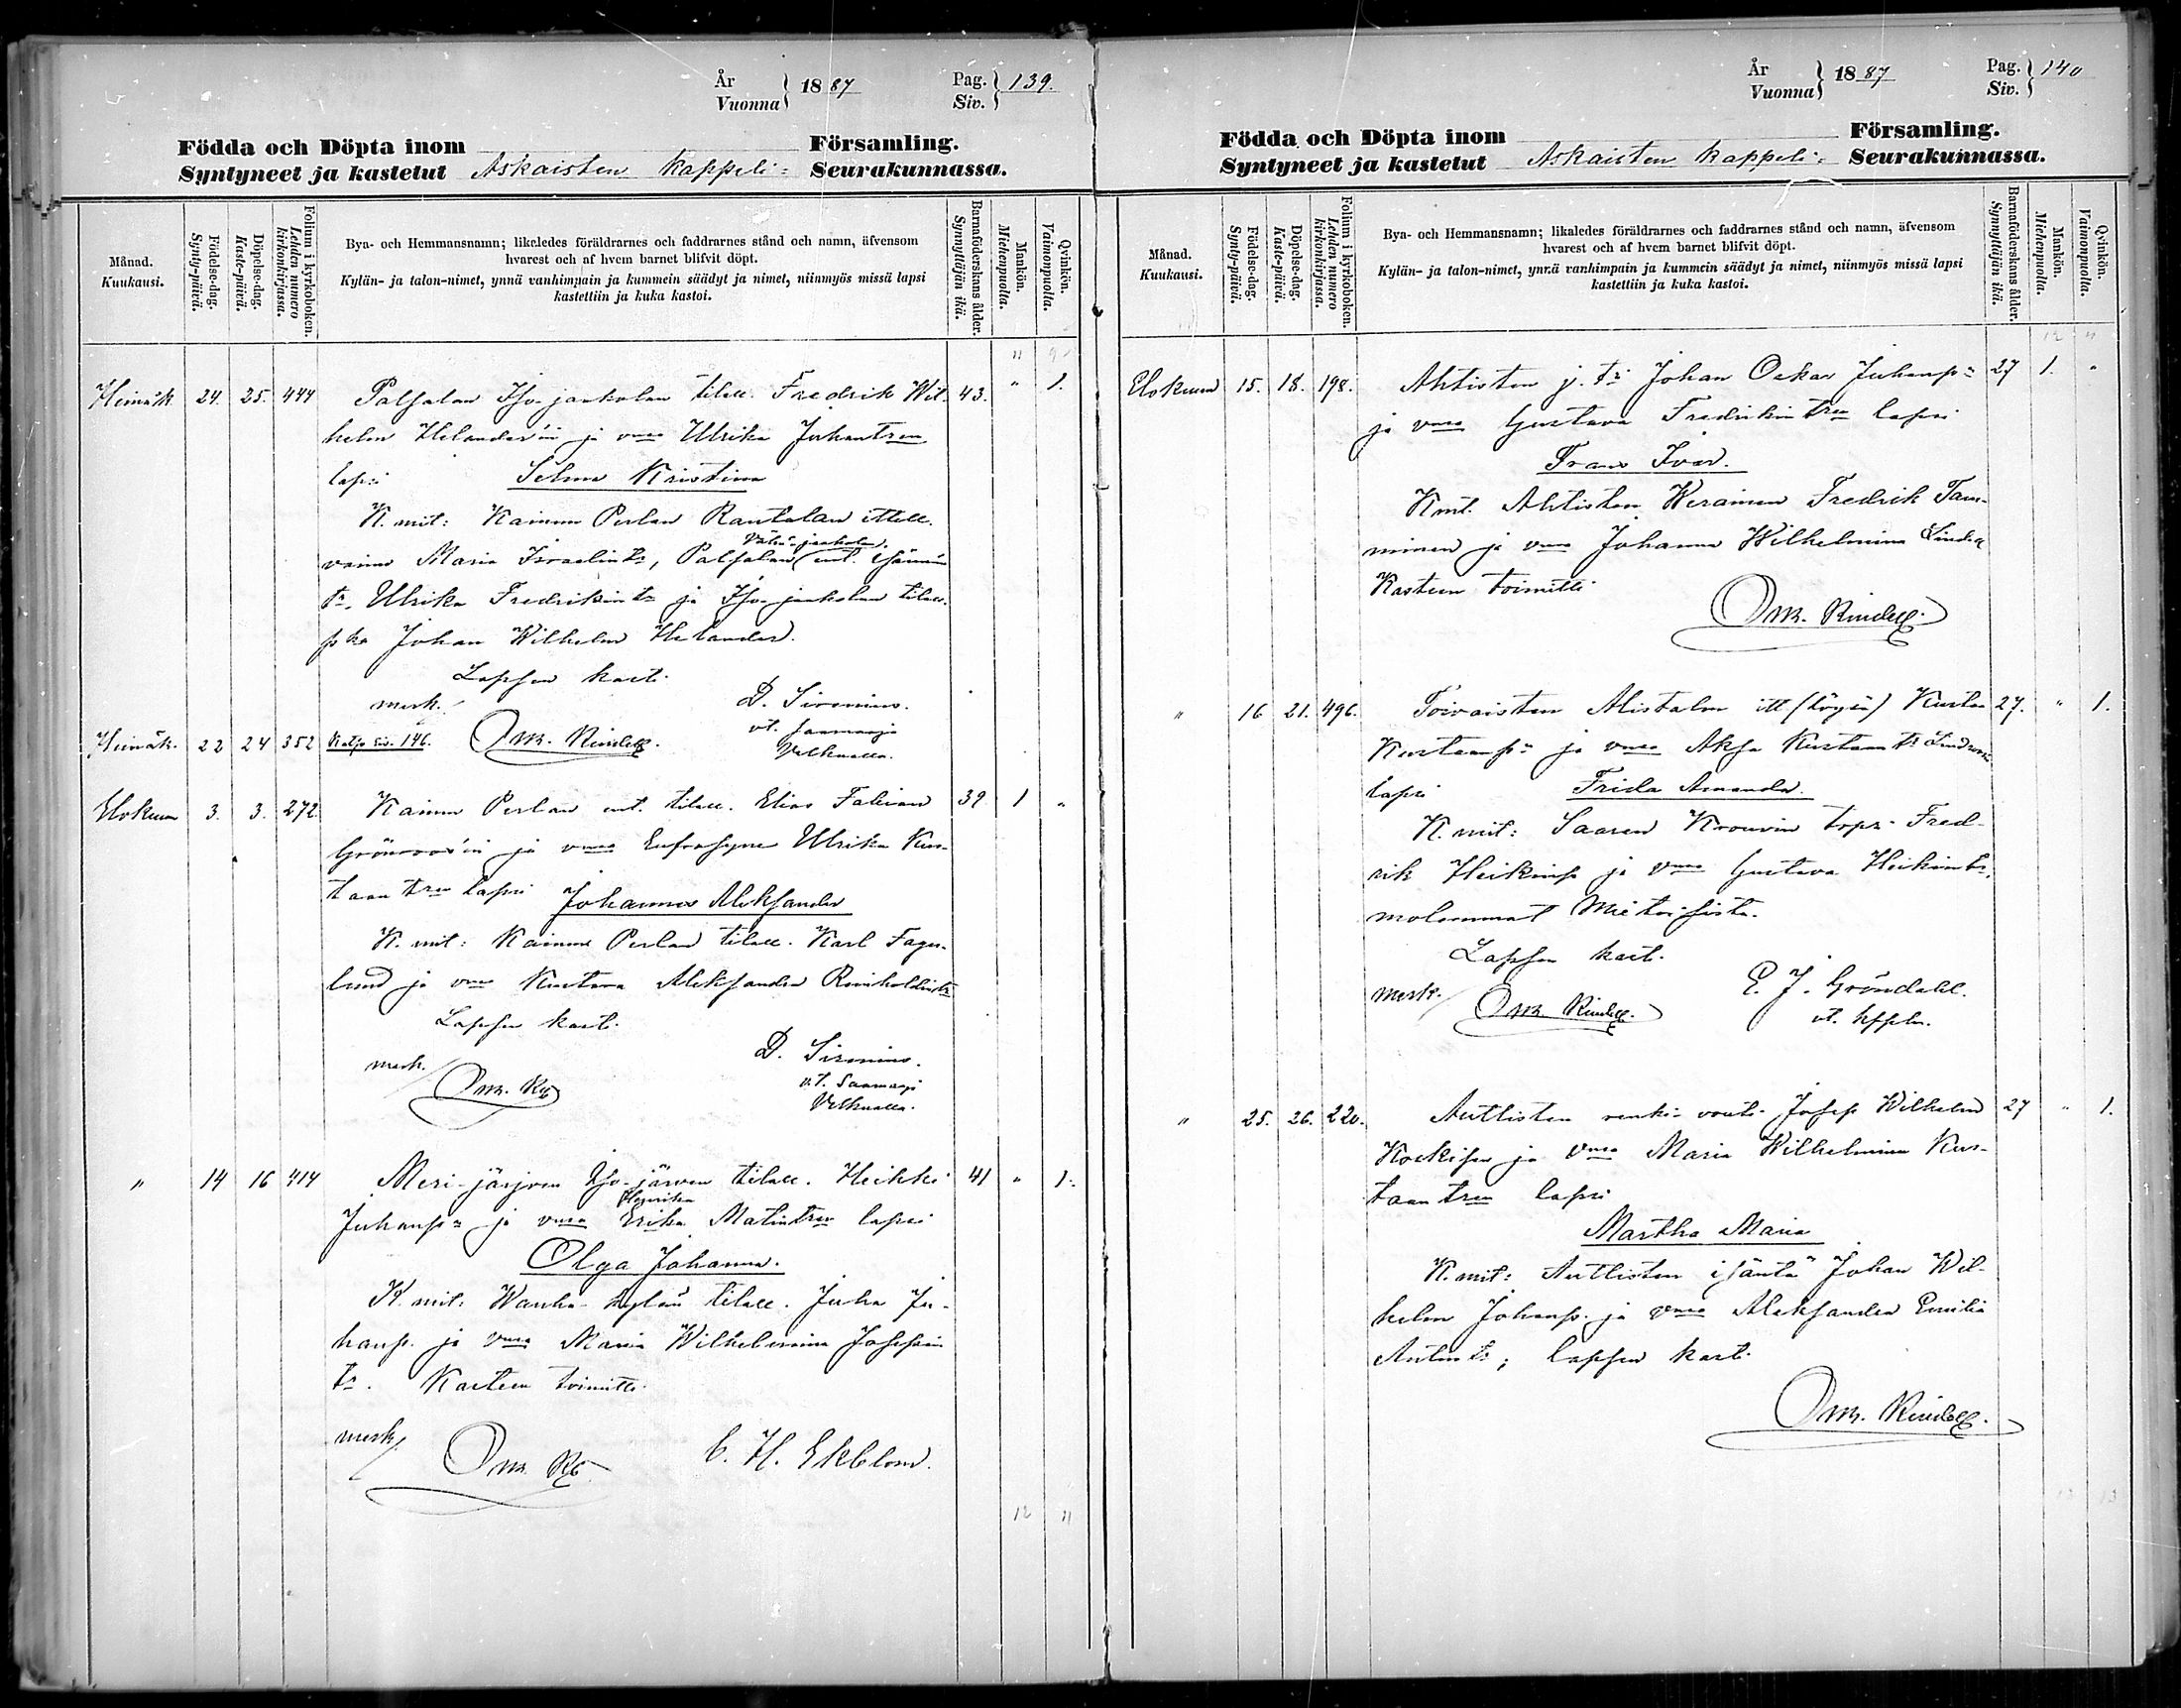 År
Vuonna 1887 Pag.
Siv. 139.
Födda och Döpta inom Församling.
Syntyneet ja kastetut Askaisten Kappeli: Seurakunnassa.
Månad.
Kuukausi.
Födelse-dag.
Synty-päivä.
Döpelse-dag.
Kaste-päivä.
Folium i kyrkoboken.
Lehden numero
kirkonkirjassa.
Bya- och Hemmansnamn; likeledes föräldrarnes och faddrarnes stånd och namn, äfvensom
hvarest och af hvem barnet blifvit döpt.
Kylän- ja talon-nimet, ynnä vanhimpain ja kummein säädyt ja nimet, niinmyös missä lapsi
kastettiin ja kuka kastoi.
Barnaföderskans ålder.
Synnyttäjän ikä.
Mankön.
Miehenpuolta.
Qvinkön.
Vaimonpuolta.
11 9
Heinäk. 24. 25. 444 Palsalan Iso-jaakolan tilall. Fredrik Wil- 43. " 1.
helm Helander'in ja vmo Ulrika Juhantren
lapsi Selma Kristina
K. mit: Kainun Perlan Rantalan ittell.
Vähä-jaakolan
vaimo Maria Israelintr, Palsalan ent. isännän
tr. Ulrika Fredrikintr ja Iso-jaakolan tilall.
pka Johan Wilhelm Helander.
Lapsen kast.
merk. D. Sirenius.
Heinäk. 22 24 352 Katso siv. 146. Osk. Rindell. vt. Saarnaaja
Velkualla.
Elokuu 3. 3. 272. Kainun Perlan ent. tilall. Elias Fabian 39 1 "
Grönroos'in ja vmo Eufrosyne Ulrika Kus-
taantren lapsi Johannes Aleksander
K. mit: Kainun Perlan tilall. Karl Fager-
lund ja vmo Kustava Aleksandra Reinholdintr
Lapsen kast.
merk. D. Sirenius.
vt. Saarnaaja
Velkualla.
" 14 16 414 Meri-järjven Iso-järven tilall. Heikki 41 " 1.
Henrika
Juhanp:n ja vmo Erika Matintren lapsi
Olga Johanna.
K. mit: Wanha-kylän tilall. Juha Ju-
hanp. ja vmo Maria Wilhelmina Josefin
tr. Kasteen toimitti
merk. C. H. Ekblom.
12 11
År
Vuonna 1887 Pag.
Siv. 140
Födda och Döpta inom Församling.
Syntyneet ja kastetut Askaisten Kappeli: Seurakunnassa.
Månad.
Kuukausi.
Födelse-dag.
Synty-päivä.
Döpelse-dag.
Kaste-päivä.
Folium i kyrkoboken.
Lehden numero
kirkonkirjassa.
Bya- och Hemmansnamn; likaledes föräldrarnes och faddrarnes stånd och namn, äfvensom
hvarest och af hvem barnet blifvit döpt.
Kylän- ja talon-nimet, ynnä vanhimpain ja kummein säädyt ja nimet, niinmyös missä lapsi
kastettiin ja kuka kastoi.
Barnaföderskans ålder.
Synnyttäjän ikä.
Mankön.
Miehenpuolta.
Qvinkön.
Vaimonpuolta.
12 11
Elokuun 15. 18. 198. Ahtisten Johan Oskar Juhanp:n 27 1. "
ja vmo Gustava Fredrikintren lapsi
Frans Ivar.
Kmt. Ahtisten Keräinen Fredrik Tam-
minen ja vmo Johanna Wilhelmina Lindell
Kasteen toimitti
Osk. Rindell.
" 16 21. 496. Toivaisten Alistalon itt (köyh) Kustaa 27. " 1.
Kustaanp:n ja vmo Aksa Kustaantr
lapsi Frida Amanda.
K. mit: Saaren Krouvin Fred-
rik Heikinp ja vmo Gustava Heikintr,
molemmat Mietoisista.
Lapsen kast.
merk. Osk. Rindell. E. J. Gröndahl.
vt. kppln.
" 25. 26. 220. Autlisten renki-vouti Josef Wilhelm 27 " 1.
Koskisen ja vmo Maria Wilhelmina Kus-
taantren lapsi
Martha Maria
K. mit: Autlisten isäntä Johan Wil-
helm Johanp. ja vmo Aleksandra Emilia
Antintr; lapsen kast.
Osk. Rindell.
13 13